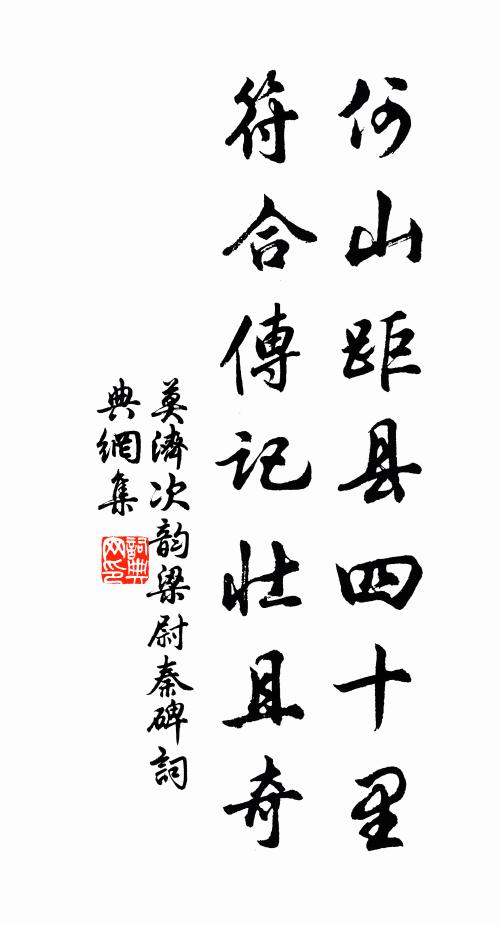 何山距县四十里
符合傳记壮且奇
莫濟次韵梁尉秦碑詞
典網集
詞典網印